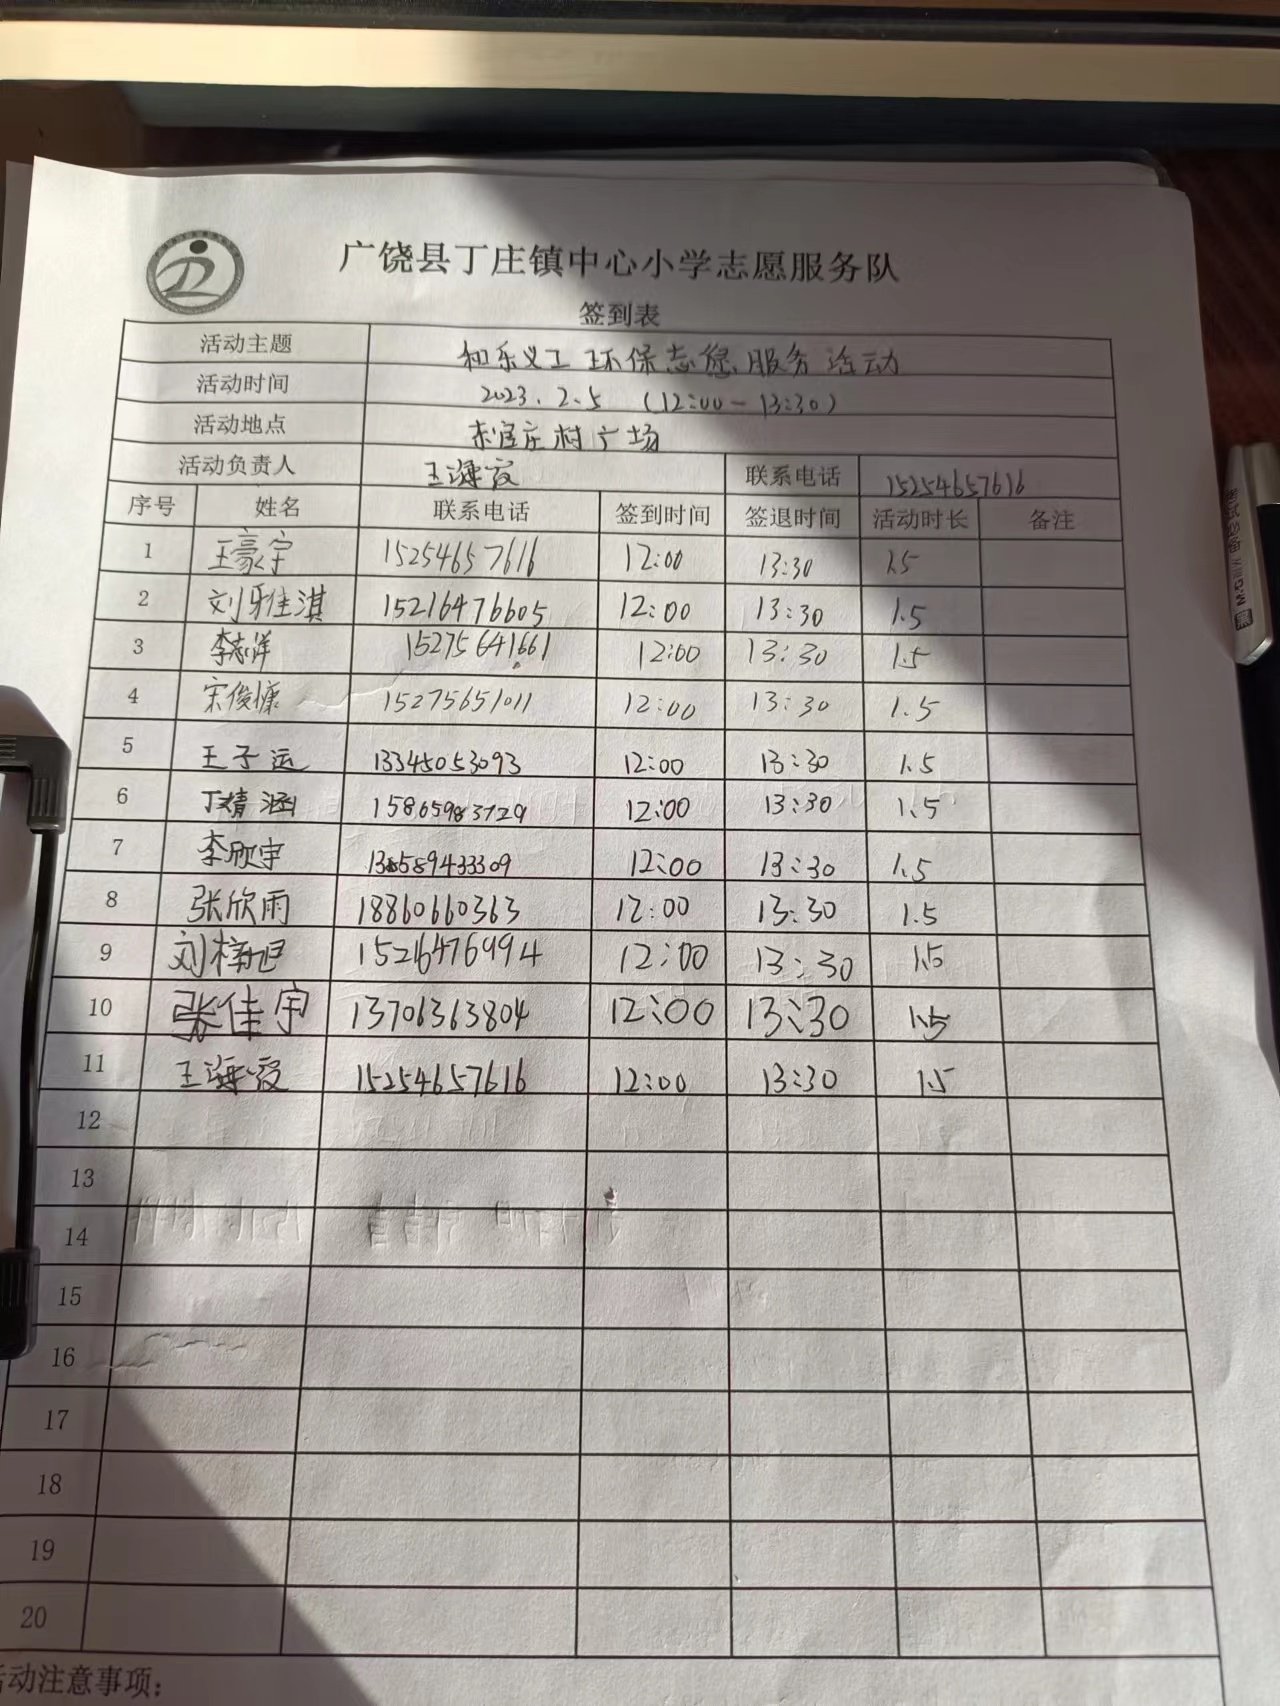 广饶县丁庄镇中心小学志愿服务队
签到表
活动主题 和乐义工环保志愿服务活动
活动时间 2023.2.5 (12:00-13:30)
活动地点 庄村广场
活动负责人 王海霞 联系电话 15254657616
序号 姓名 联系电话 签到时间 签退时间 活动时长 备注
1 王豪宇 15254657616 12:00 13:30 1.5
2 刘雅淇 15216476605 12:00 13:30 1.5
3 李志洋 15275641661 12:00 13:30 1.5
4 宋俊慷 15275651011 12:00 13:30 1.5
5 王子运 13345053093 12:00 13:30 1.5
6 丁婧涵 15865983729 12:00 13:30 1.5
7 李欣宇 12:00 13:30 1.5
8 张欣雨 18860660363 12:00 13:30 1.5
9 刘梓旭 15216476994 12:00 13:30 1.5
10 张佳宇 13706363804 12:00 13:30 1.5
11 王海霞 15254657616 12:00 13:30 1.5
12
13
14
15
16
17
18
19
20
活动注意事项: